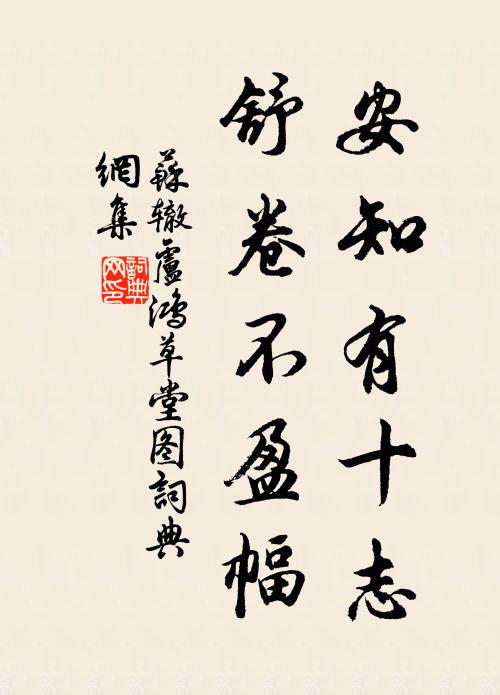 安知有十志
舒卷不盈幅
蘇轍盧鴻草堂图詞典
網集
詞典
网印